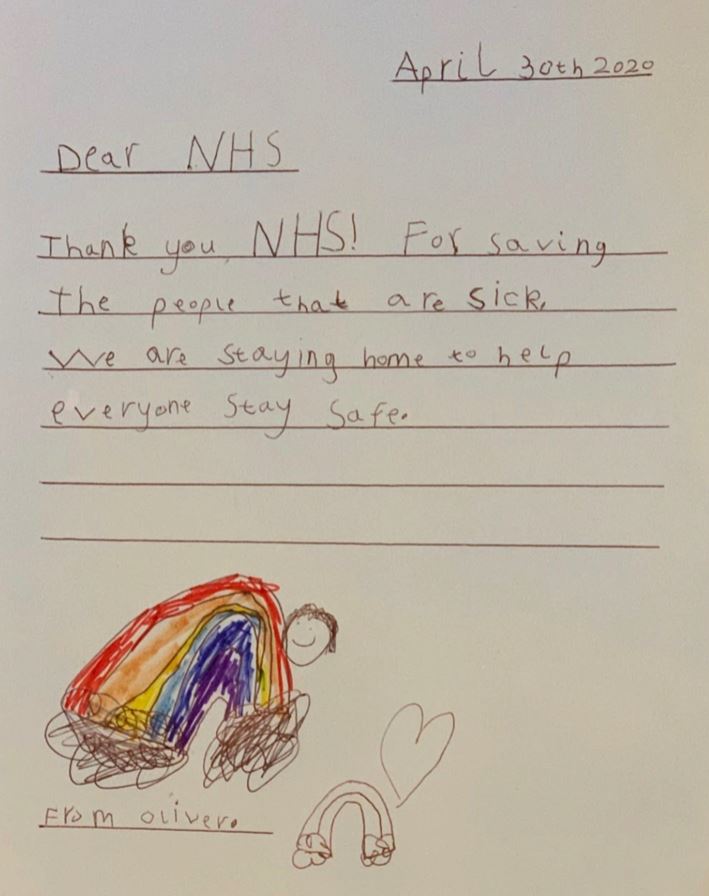 April 30th 2020
Dear NHS
Thank you NHS! For saving
the people that are sick.
We are staying home to help
everyone stay safe.
From oliver.